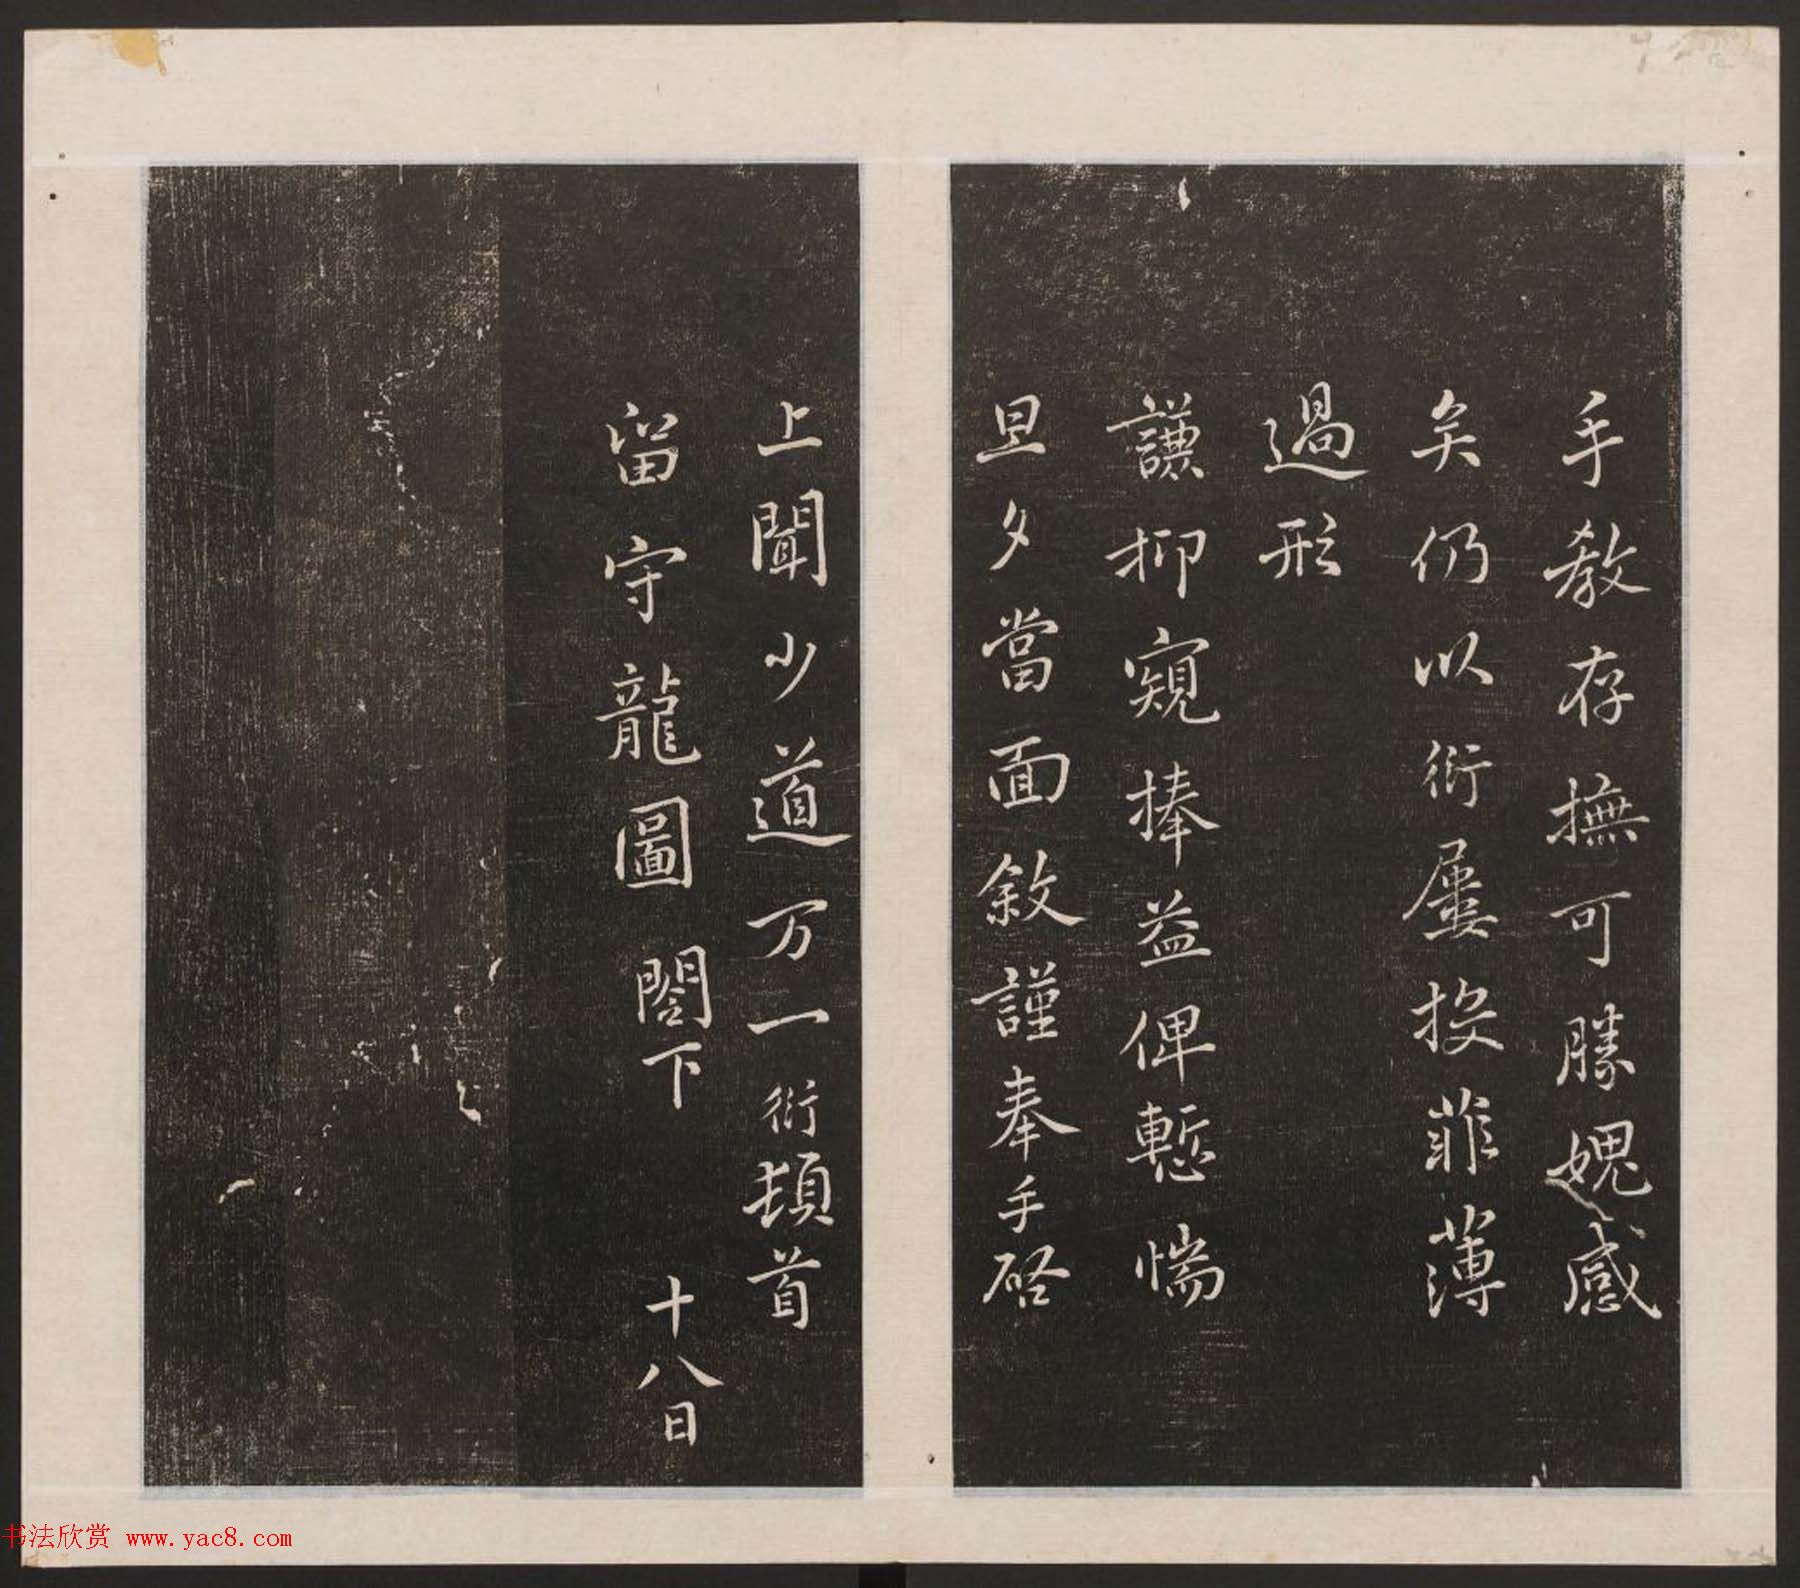 手教存撫可勝媿感
矣仍以衍屢投菲薄
過形
謙抑窺捧益俾慙惴
旦夕當面敘謹奉手啓
上聞少道万一衍頓首
留守龍圖閤下 十八日
书法欣赏 www.yac8.com